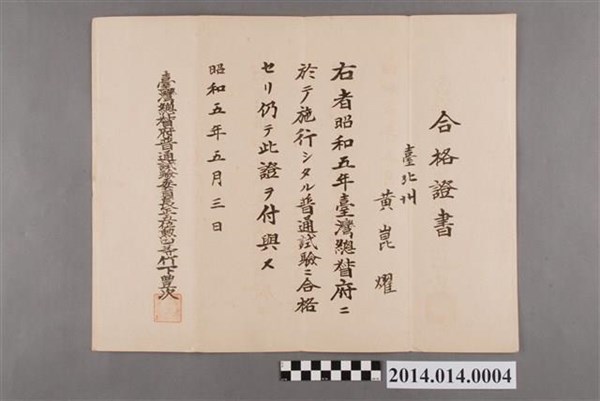 合格證書
臺北州
黃崑燿
右者昭和五年臺灣總督府ニ
於テ施行シタル普通試驗ニ合格
セリ仍テ此證ヲ付與ス
昭和五年五月三日
臺灣總督府普通試驗委員長 竹下豐次
2014.014.0004